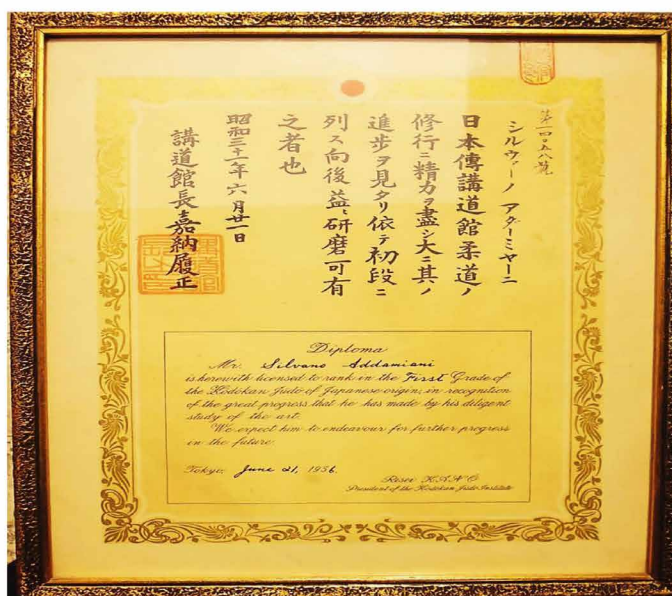 第一四五八號
シルヴァーノ アダーミヤーニ
日本傳講道館柔道ノ
修行ニ精力ヲ盡シ大ニ其ノ
進歩ヲ見タリ依テ初段ニ
列ス向後益〻研磨可有
之者也
昭和三十一年六月廿一日
講道館長嘉納履正
Diploma
Mr. Silvano Addamiani
is herewith licensed to rank in the First Grade of
the Kodokan Judo of Japanese origin, in recognition
of the great progress that he has made by his diligent
study of the art.
We expect him to endeavour for further progress
in the future.
Tokyo, June 21, 1956.
Risei KANO
President of the Kodokan Judo Institute